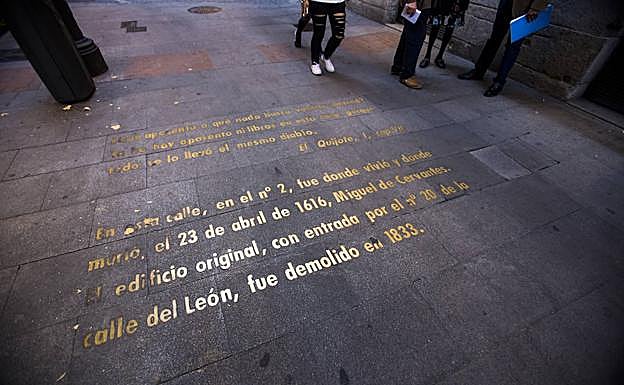 aposento o qué nada busca vuestra merced?
Ya no hay aposento ni libros en esta casa, porque
todo se lo llevó el mesmo diablo.
El Quijote, I, capítulo
En esta calle, en el nº 2, fue donde vivió y donde
murió, el 23 de abril de 1616, Miguel de Cervantes.
El edificio original, con entrada por el nº 20 de la
calle del León, fue demolido en 1833.